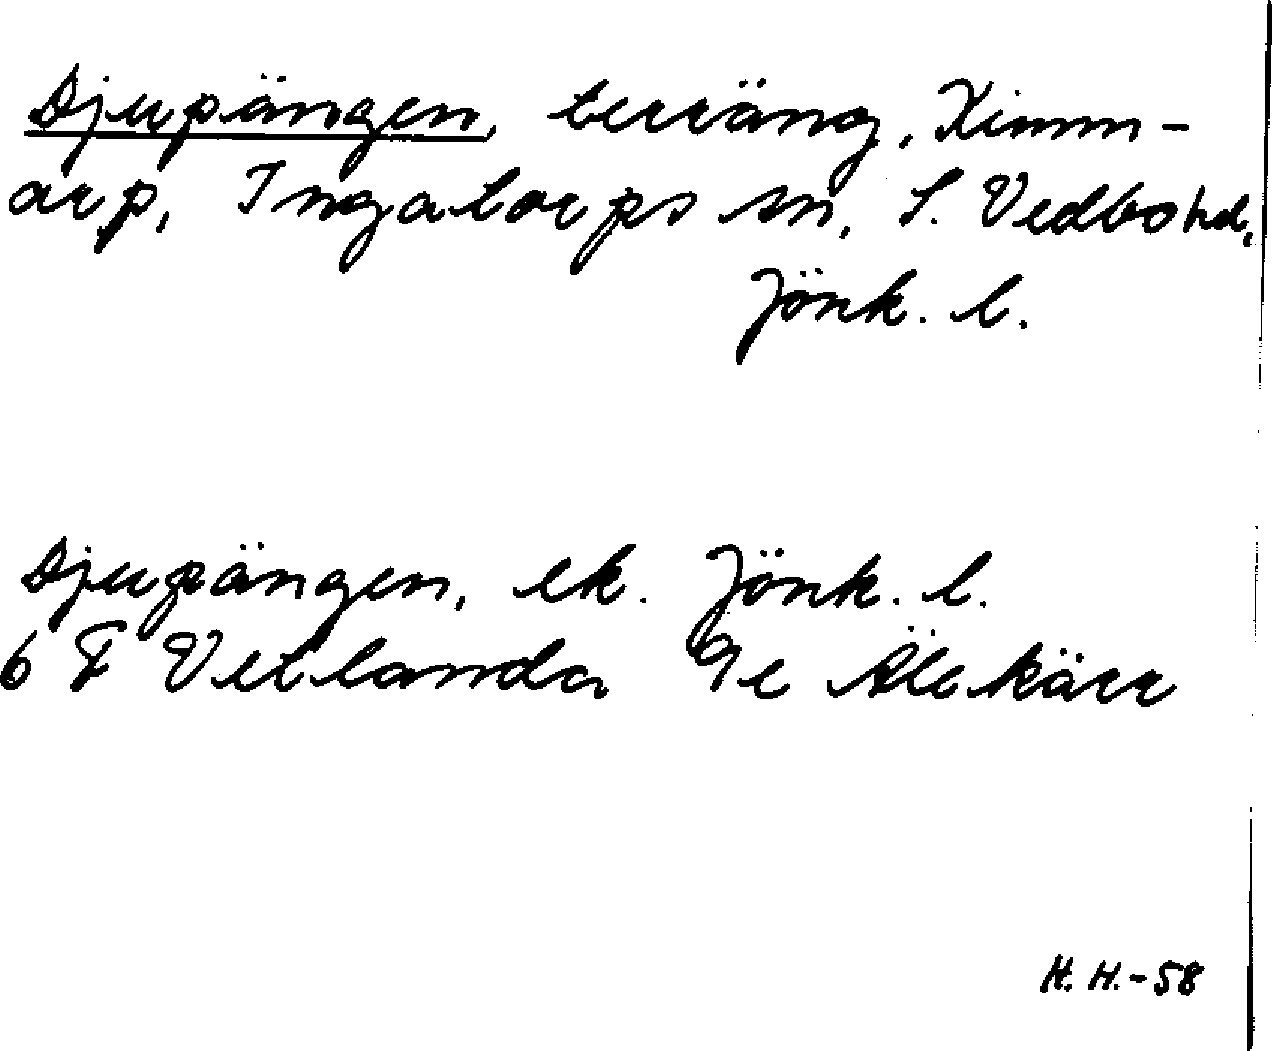 Djupängen, terräng, Kimm-
arp, Ingatorps sn, S. Vedbo hd,
Jönk. l.
Djupängen, ek. Jönk. l.
6 F Vetlanda 9e Älekärr
H. H. - 58